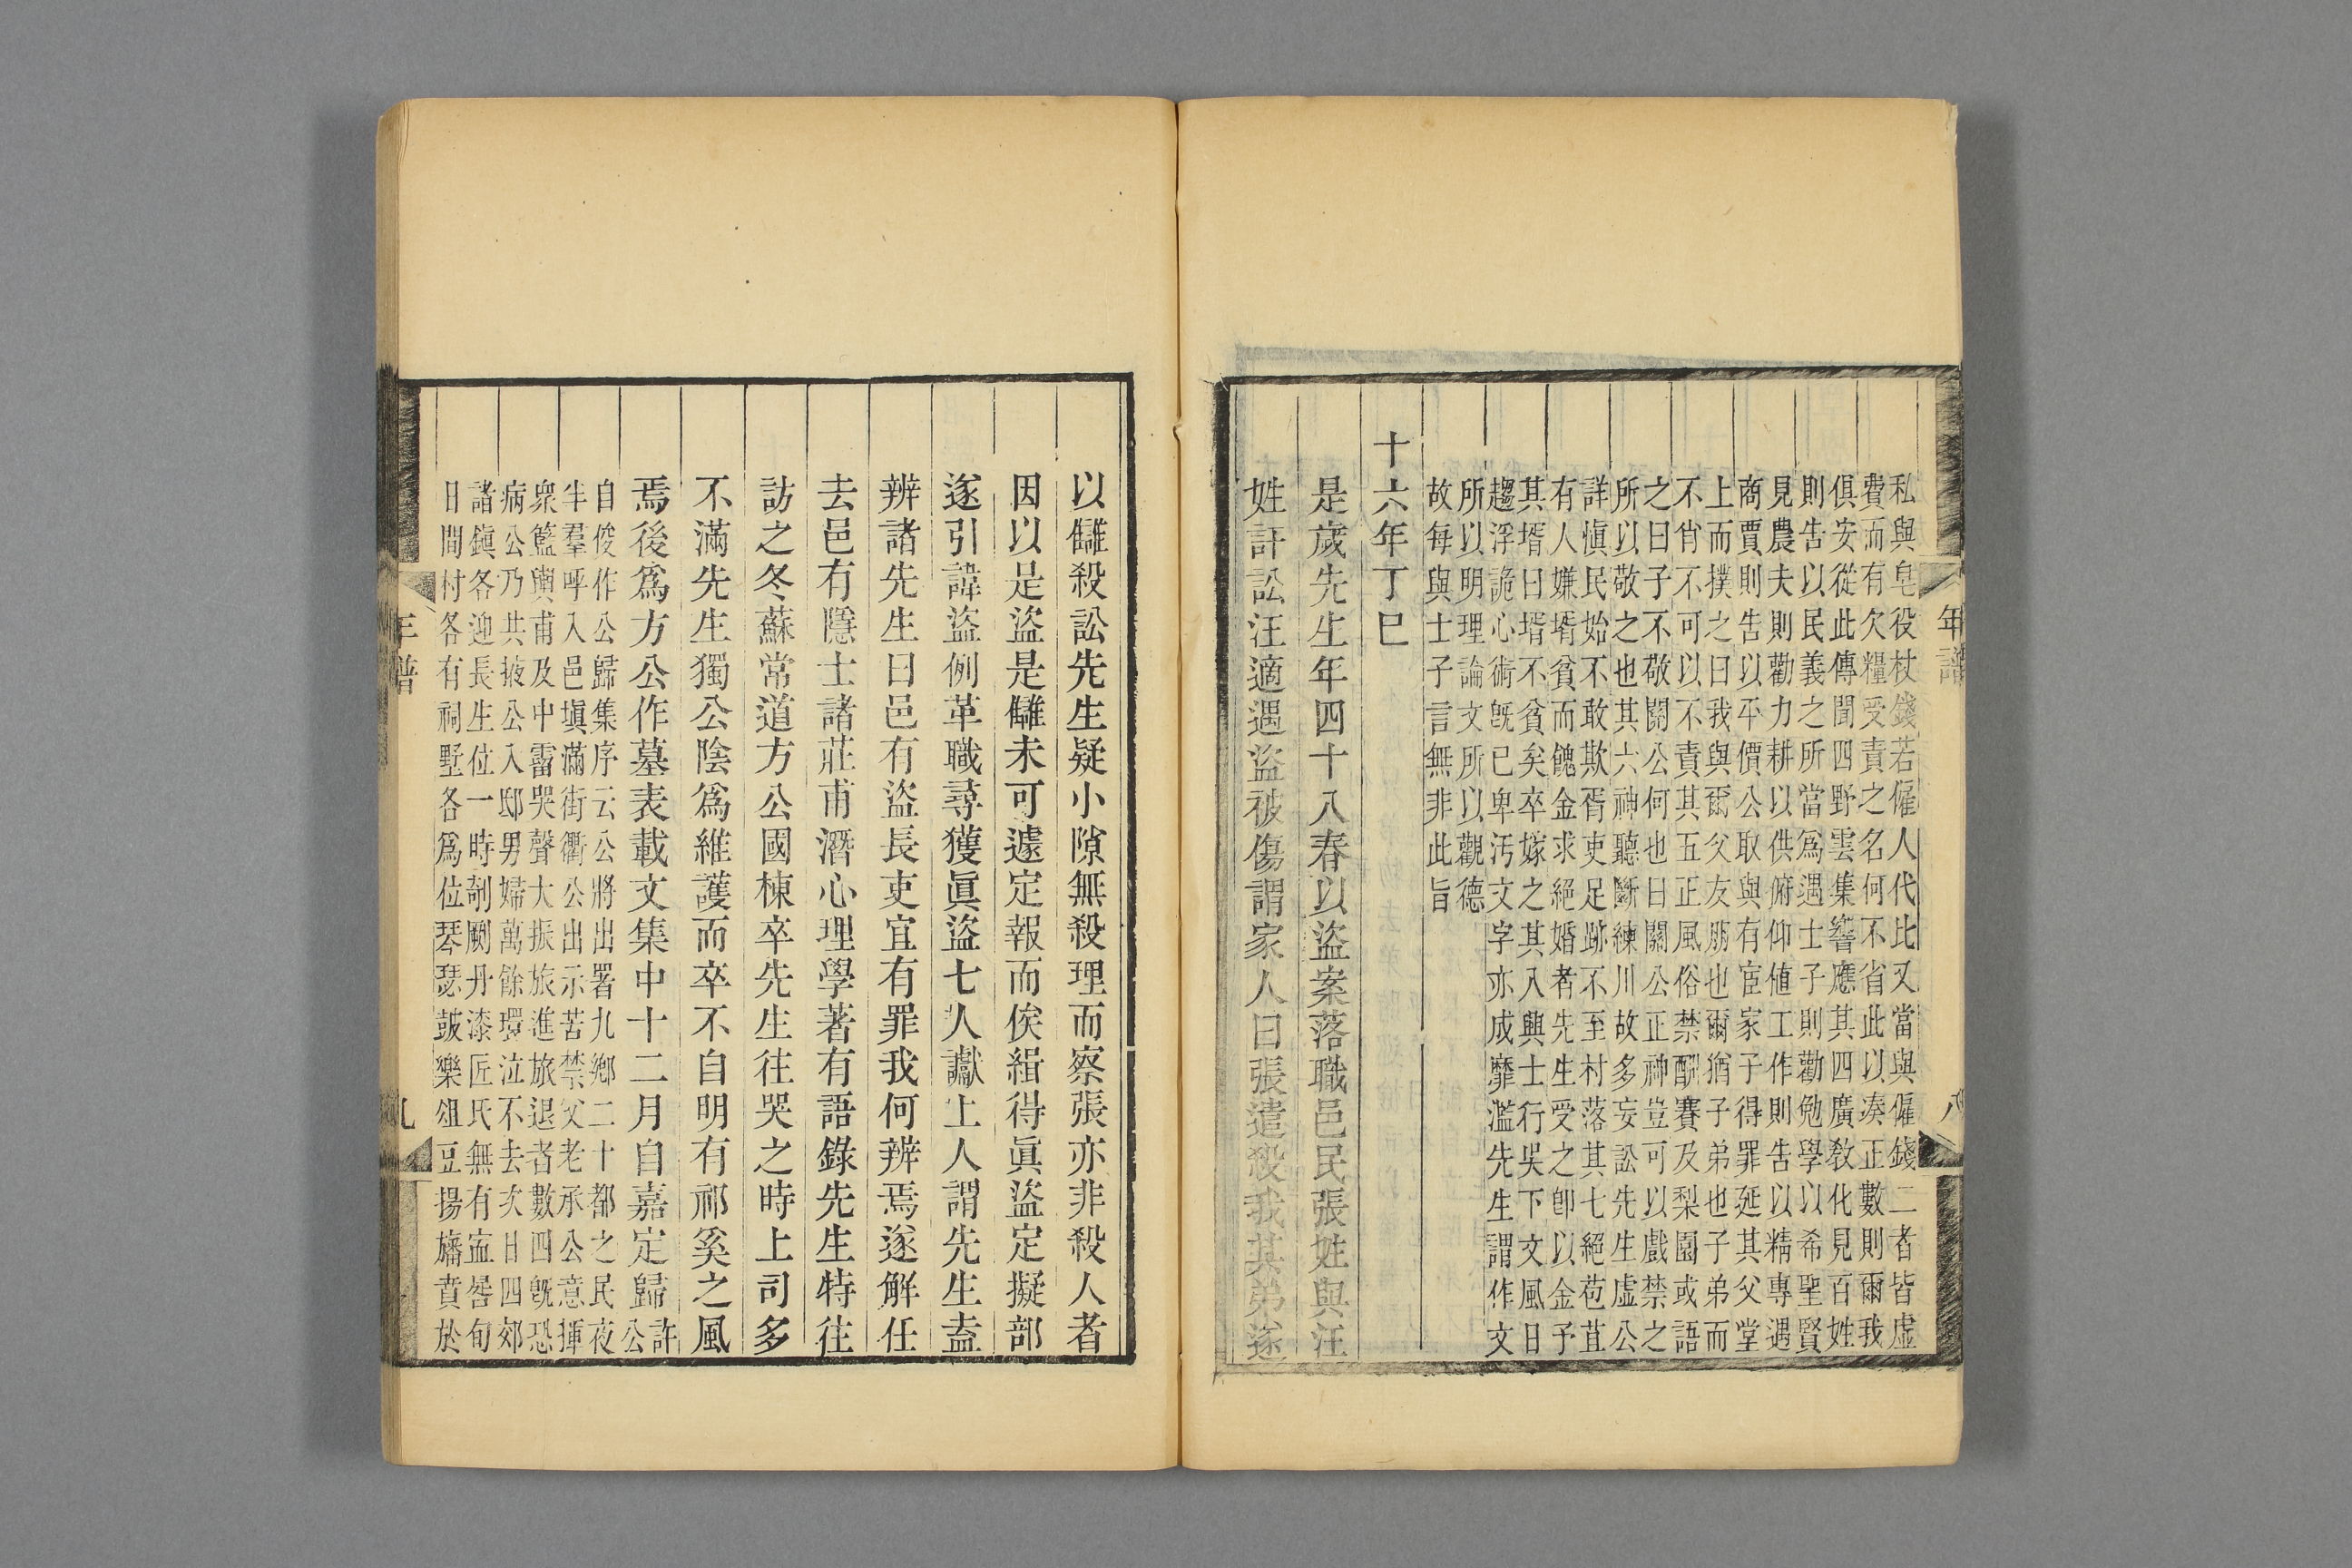 私與皂役杖錢若僱人代比又當與僱錢二者皆虛
費而有欠糧受責之名何不省此以湊正數則爾我
俱安從此傳聞四野雲集響應其四廣教化見百姓
則告以民義之所當爲遇士子則勸勉學以希聖賢
見農夫則勸力耕以供俯仰値工作則告以精專遇
商賈則告以平價公取與有宦家子得罪延其父堂
上而撲之曰我與爾父友朋也爾猶子弟也子弟而
不肖不可以不責其五正風俗禁酬賽及梨園或語
之曰子不敬關公何也曰關公正神豈可以戲禁之
所以敬之也其六神聽斷練川故多妄訟先生虛公
詳愼民始不敢欺胥吏足跡不至村落其七絕苞苴
有人嫌壻貧而餽金求絕婚者先生受之卽以金予
其壻曰壻不貧矣卒嫁之其入興士行吳下文風日
趨浮詭心術旣已卑汚文字亦成靡濫先生謂作文
所以明理論文所以觀德
故每與士子言無非此旨
十六年丁巳
是歲先生年四十八春以盜案落職邑民張姓與汪
姓訐訟汪適遇盜被傷謂家人曰張遣殺我其弟遂
年譜
八
以讎殺訟先生疑小隙無殺理而察張亦非殺人者
因以是盜是讎未可遽定報而俟緝得眞盜定擬部
遂引諱盜例革職尋獲眞盜七人讞上人謂先生盍
辨諸先生曰邑有盜長吏宜有罪我何辨焉遂解任
去邑有隱士諸莊甫潛心理學著有語錄先生特往
訪之冬蘇常道方公國棟卒先生往哭之時上司多
不滿先生獨公陰爲維護而卒不自明有祁奚之風
焉後爲方公作墓表載文集中十二月自嘉定歸許公
自俊作公歸集序云公將出署九鄉二十都之民夜
半羣呼入邑塡滿街衢公出示苦禁父老承公意揮
衆籃輿甫及中霤哭聲大振旅進旅退者數四旣恐
病公乃共掖公入邸男婦萬餘環泣不去次日四郊
諸鎭各迎長生位一時剞劂丹漆匠氏無有寍晷旬
日間村各有祠墅各爲位琴瑟鼓樂俎豆揚旛賁於
年譜
九